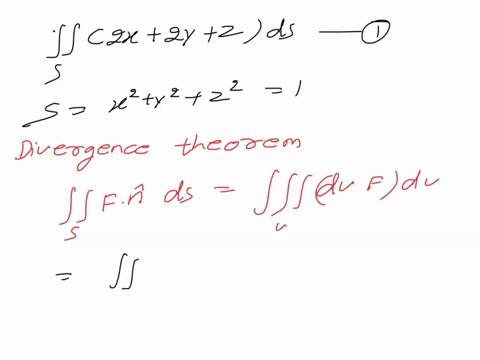 ∬_S (2x + 2y + z) ds —— ①
S = x² + y² + z² = 1
Divergence theorem
∬_S F·n̂ ds = ∭_v (dv F) dv
= ∬